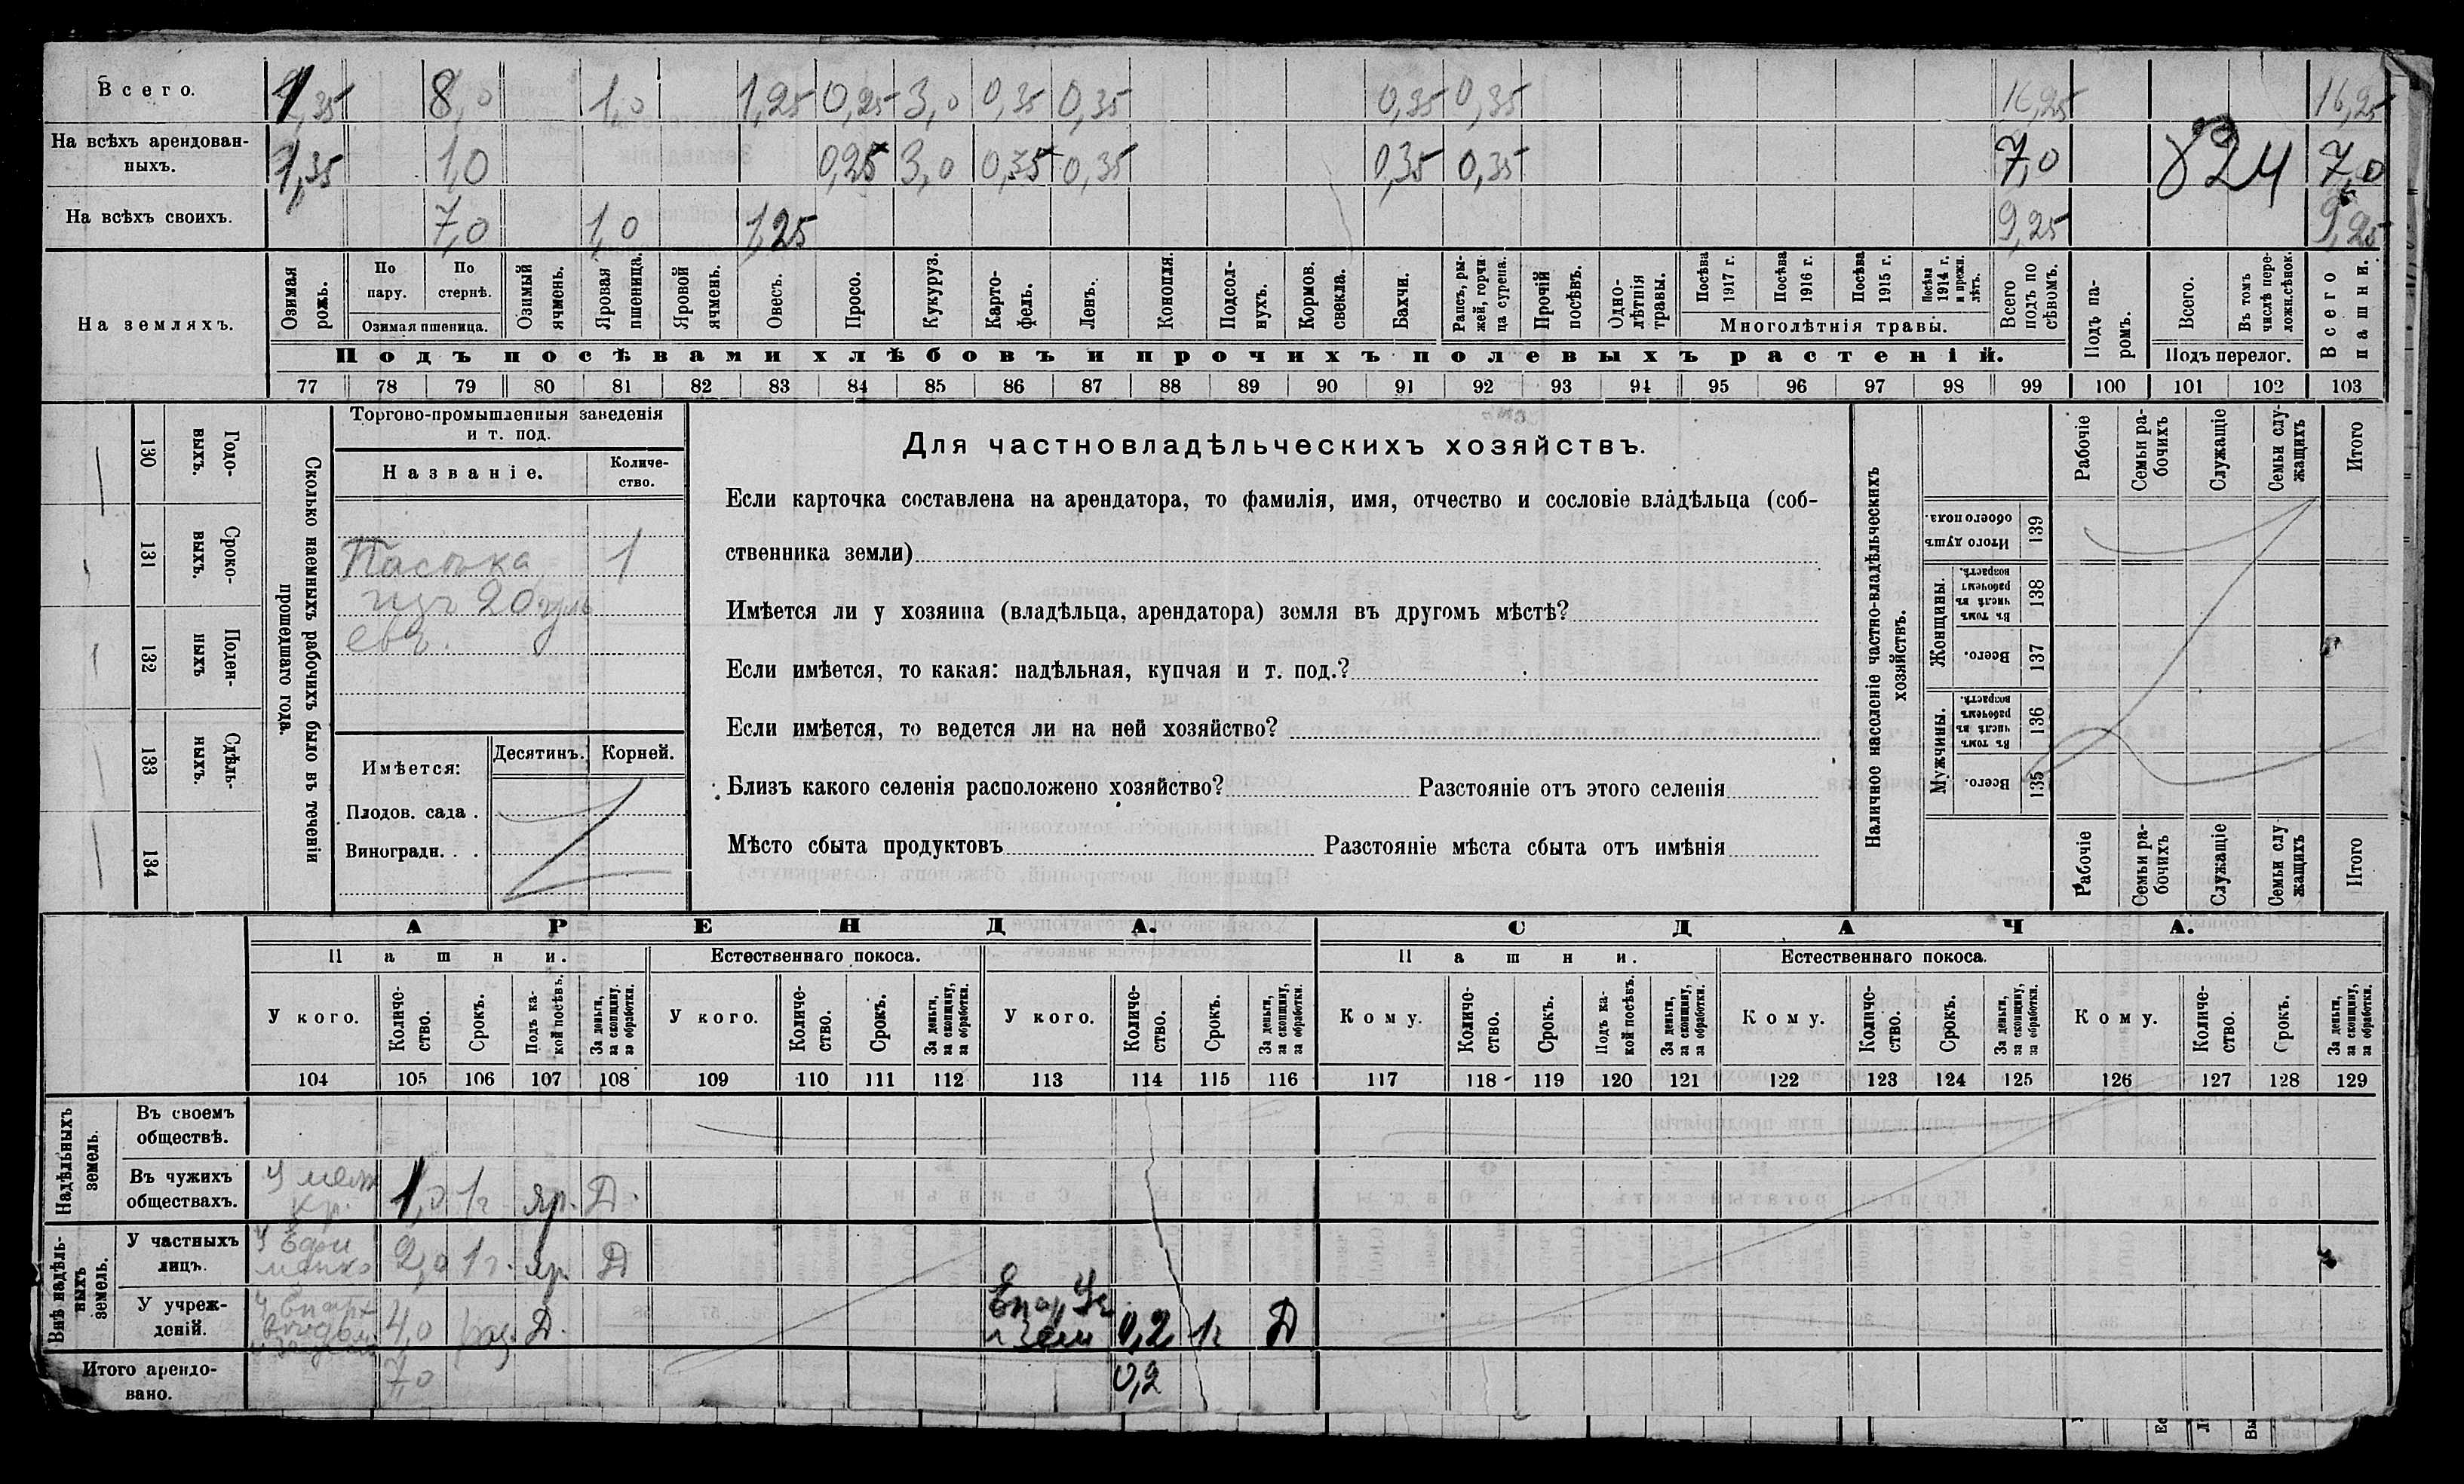 Всего. 1,35 8,0 1,0 1,25 0,25 3,0 0,35 0,35 0,35 0,35 16,25 16,25
На всѣхъ арендован-
ныхъ. 1,35 1,0 0,25 3,0 0,35 0,35 0,35 0,35 7,0 824 7,0
На всѣхъ своихъ. 7,0 1,0 1,25 9,25 9,25
На земляхъ.
Озимая рожь.
По пару.
По стернѣ.
Озимая пшеница.
Озимый ячмень.
Яровая пшеница.
Яровой ячмень.
Овесъ.
Просо.
Кукуруз.
Карто-
фель.
Ленъ.
Конопля.
Подсол-
нухъ.
Кормов.
свекла.
Бахчи.
Рапсъ, ры-
жей, горчи
ца сурепа.
Прочій
посѣвъ.
Одно-
лѣтнія
травы.
Посѣва
1917 г.
Посѣва
1916 г.
Посѣва
1915 г.
Посѣва
1914 г.
и прежн.
лѣтъ.
Многолѣтнія травы.
Всего
подъ по
сѣвомъ.
Подъ па-
ромъ.
Всего.
Въ томъ
числѣ пере-
ложн.сѣнок.
Подъ перелог.
Всего
пашни.
Подъ посѣвами хлѣбовъ и прочихъ полевыхъ растеній.
77 78 79 80 81 82 83 84 85 86 87 88 89 90 91 92 93 94 95 96 97 98 99 100 101 102 103
130 Годо-
выхъ.
131 Сроко-
выхъ.
132 Поден-
ныхъ
133 Сдѣль-
ныхъ.
134
Сколько наемныхъ рабочихъ было въ теченіи
прошедшаго года.
Торгово-промышленныя заведенія
и т. под.
Названіе.
Количе-
ство.
Пасѣка 1
изъ 20 улъ
евъ.
Имѣется:
Десятинъ. Корней.
Плодов. сада .
Виноградн. . .
Для частновладѣльческихъ хозяйствъ.
Если карточка составлена на арендатора, то фамилія, имя, отчество и сословіе владѣльца (соб-
ственника земли)
Имѣется ли у хозяина (владѣльца, арендатора) земля въ другомъ мѣстѣ?
Если имѣется, то какая: надѣльная, купчая и т. под.?
Если имѣется, то ведется ли на ней хозяйство?
Близъ какого селенія расположено хозяйство? Разстояніе отъ этого селенія
Мѣсто сбыта продуктовъ Разстояніе мѣста сбыта отъ имѣнія
Наличное населеніе частно-владѣльческихъ
хозяйствъ.
Рабочіе
Семьи ра-
бочихъ
Служащіе
Семьи слу-
жащихъ
Итого
Итого душъ
обоего пола. 139
Женщины.
Въ томъ
числѣ въ
рабочемъ
возрастѣ. 138
Всего. 137
Мужчины.
Въ томъ
числѣ въ
рабочемъ
возрастѣ. 136
Всего. 135
Рабочіе
Семьи ра-
бочихъ
Служащіе
Семьи слу
жащихъ
Итого
АРЕНДА. СДАЧА.
Пашни. Естественнаго покоса. Пашни. Естественнаго покоса.
У кого.
Количе-
ство.
Срокъ.
Подъ ка-
кой посѣвъ.
За деньги,
за скопщину.
за обработки.
У кого.
Количе-
ство.
Срокъ.
За деньги,
за скопщину,
за обработки.
У кого.
Количе-
ство.
Срокъ.
За деньги,
за скопщину,
за обработки.
Кому.
Количе-
ство.
Срокъ.
Подъ ка-
кой посѣвъ.
За деньги,
за скопщину,
за обработки.
Кому.
Количе-
ство.
Срокъ.
За деньги,
за скопщину,
за обработки.
Кому.
Количе-
ство.
Срокъ.
За деньги,
за скопщину,
за обработки.
104 105 106 107 108 109 110 111 112 113 114 115 116 117 118 119 120 121 122 123 124 125 126 127 128 129
Надѣльныхъ
земель.
Въ своемъ
обществѣ.
Въ чужихъ
обществахъ. У кр. 1,0 1г яр. Д.
Внѣ надѣль-
ныхъ
земель.
У частныхъ
лицъ. У 2,0 1г. яр. Д
У учреж-
деній. 4,0 Д. 0,2 1г Д
Итого арендо-
вано. 7,0 0,2